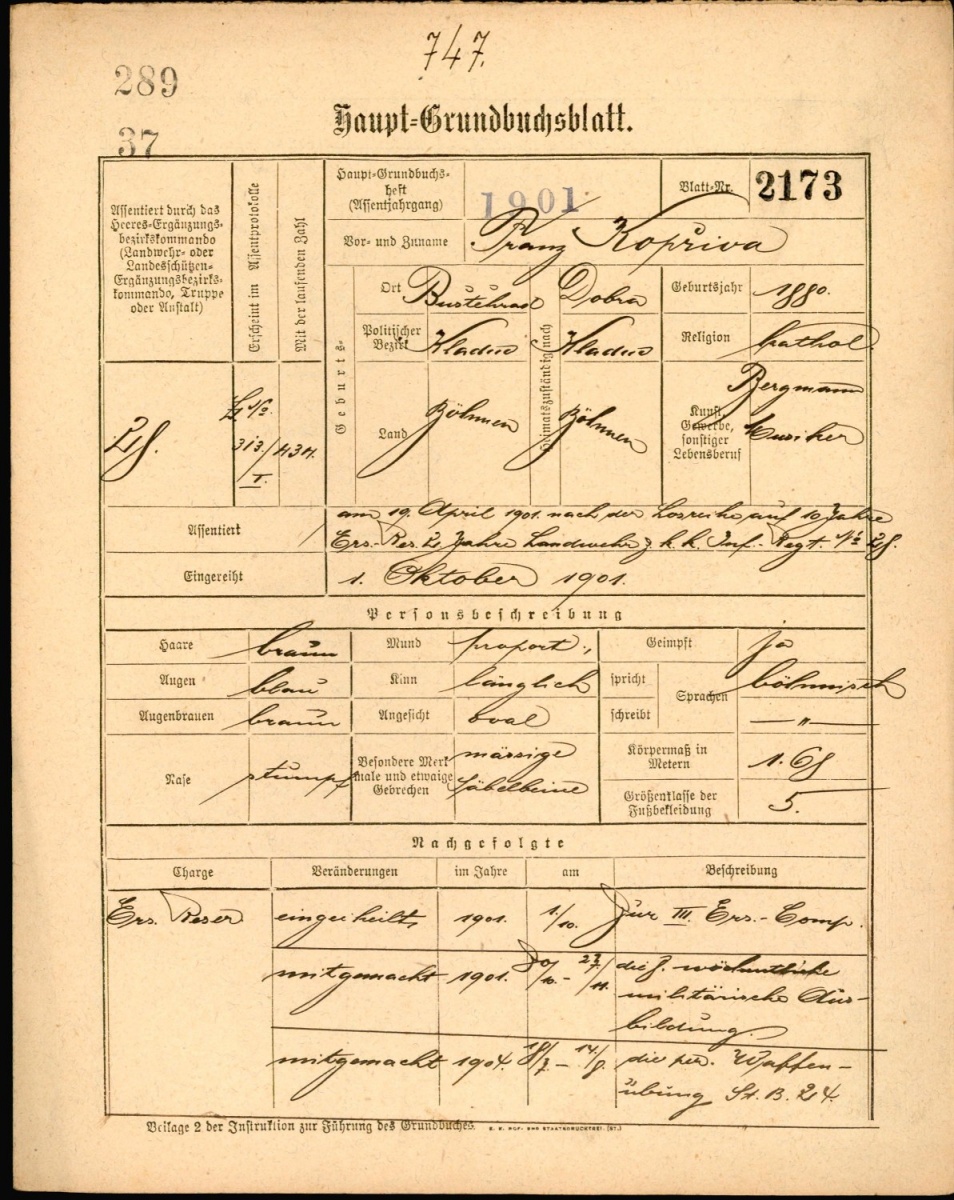 747.
289
Haupt-Grundbuchsblatt.
37
Assentiert durch das
Heeres-Ergänzungs-
bezirkskommando
(Landwehr- oder
Landesschützen-
Ergänzungsbezirks-
kommando, Truppe
oder Anstalt)
Erscheint im Assentprotokolle
Mit der laufenden Zahl
Haupt-Grundbuchs-
heft
(Assentjahrgang)
1901
Blatt-Nr.
2173
Vor- und Zuname
Franz Kopřiva
Geburts-
Ort
Buštěhrad
Heimatszuständig nach
Dobra
Geburtsjahr
1880.
Politischer
Bezirk
Kladno
Kladno
Religion
kathol.
Land
Böhmen
Böhmen
Kunst,
Gewerbe,
sonstiger
Lebensberuf
Bergmann
Musiker
28.
313/434.
I.
Assentiert
am 19. April 1901. nach der Losreihe auf 10 Jahre
Ers.-Res. 2 Jahre Landwehr z. k. k. Inf.-Regt. No 28.
Eingereiht
1. Oktober 1901.
Personsbeschreibung
Haare
braun
Mund
proport.,
Geimpft
ja
Augen
blau
Kinn
länglich
spricht
Sprachen
böhmisch
Augenbrauen
braun
Angesicht
oval
schreibt
— " —
Nase
stumpf
Besondere Merk
male und etwaige
Gebrechen
mässige
Säbelbeine
Körpermaß in
Metern
1.68
Größenklasse der
Fußbekleidung
5.
Nachgefolgte
Charge
Veränderungen
im Jahre
am
Beschreibung
Ers. Reser
eingetheilt,
1901.
1/10.
Zur III. Ers.-Comp.
mitgemacht
1901.
die 8. wöchentliche
militärische Aus-
bildung.
mitgemacht
1904.
18/7 — 14/8.
die per. Waffen-
übung St. B. 24.
Beilage 2 der Instruktion zur Führung des Grundbuches.
K. K. HOF- UND STAATSDRUCKEREI.